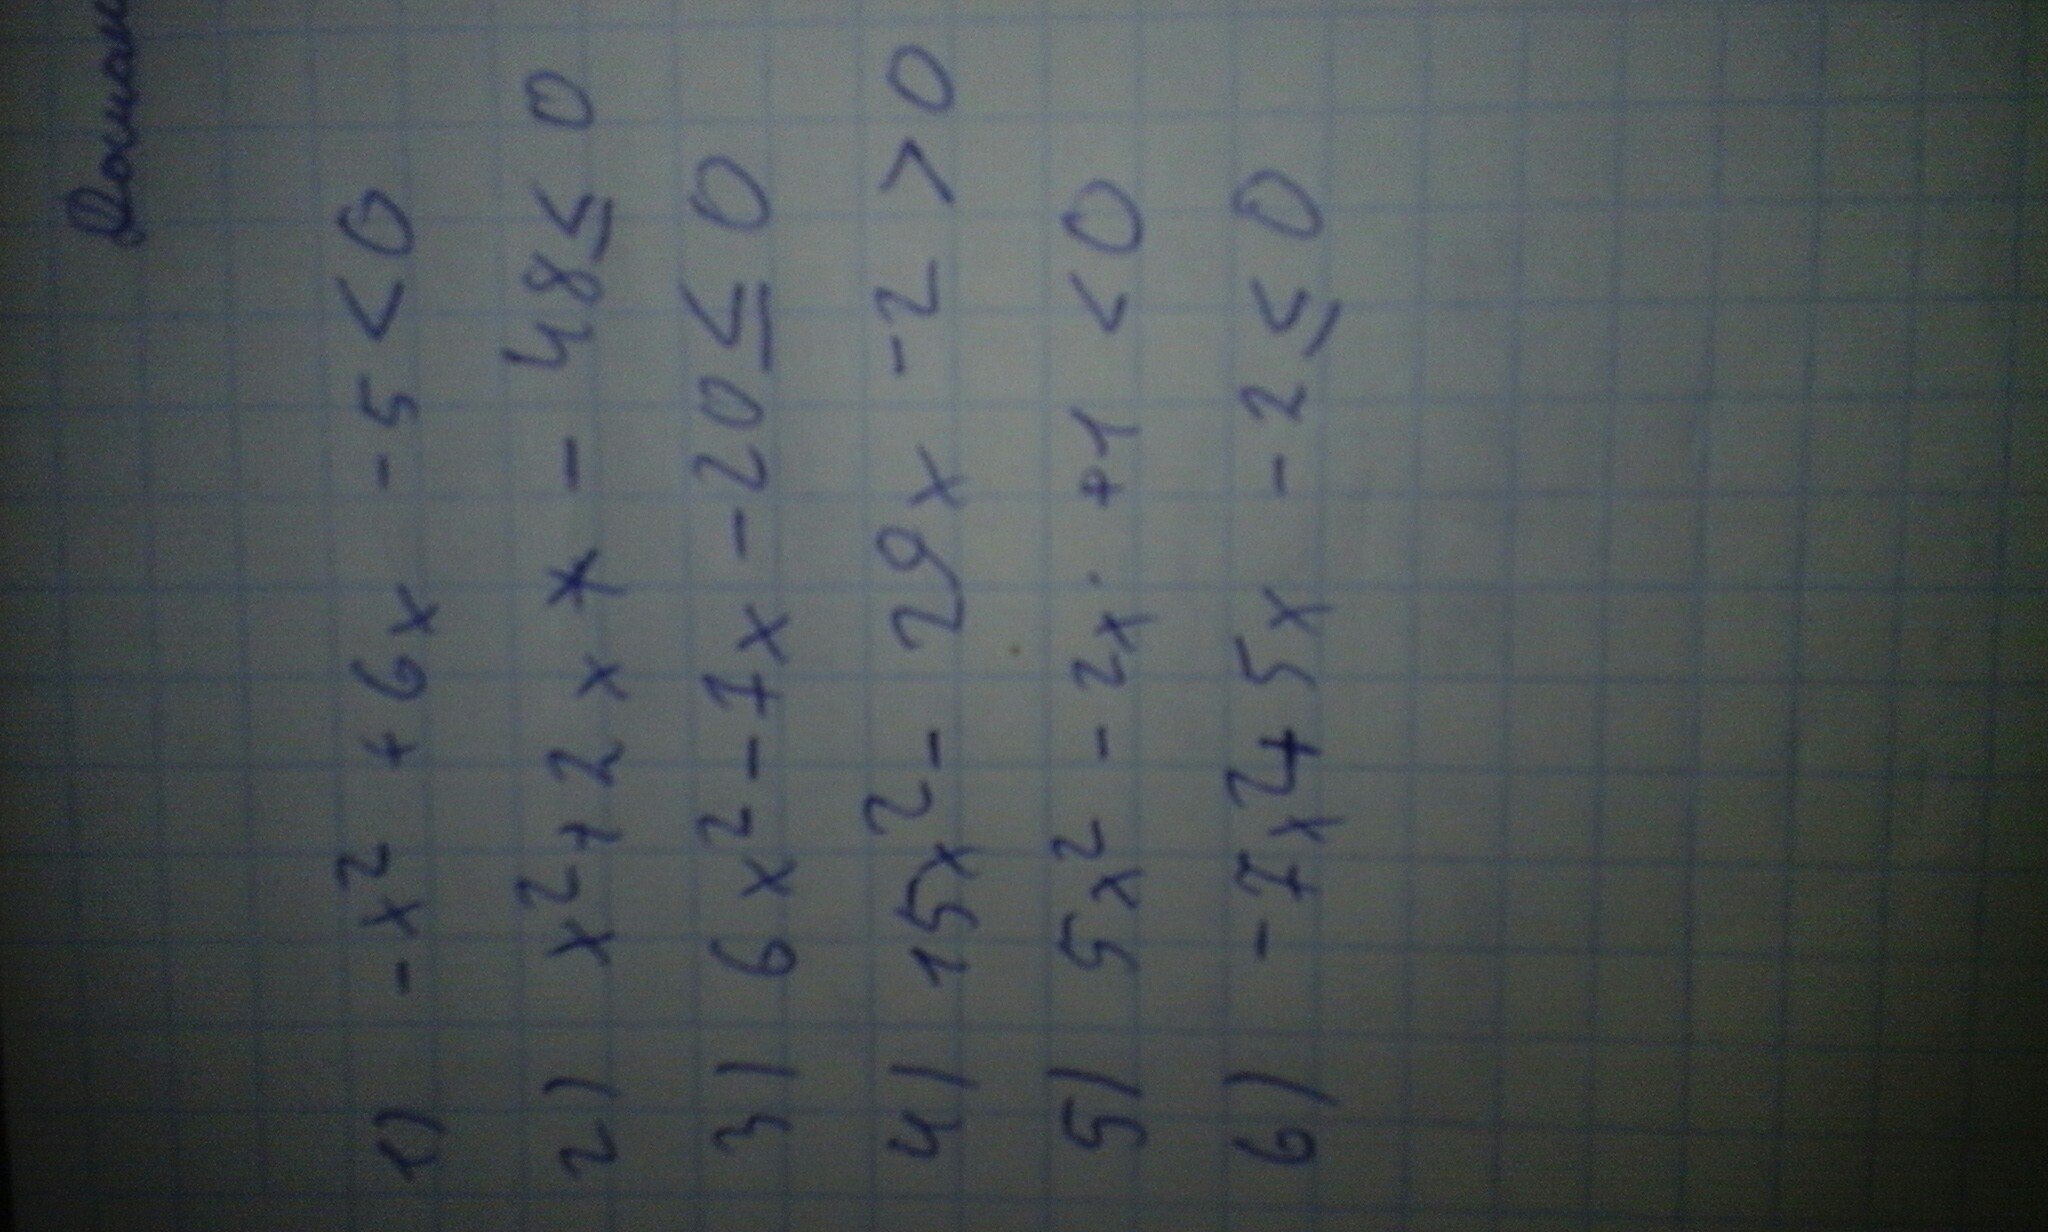 1) -x² + 6x - 5 < 0
2) x² + 2x - 48 ≤ 0
3) 6x² - 7x - 20 ≤ 0
4) 15x² - 29x - 2 > 0
5) 5x² - 2x + 1 < 0
6) -7x² + 5x - 2 ≤ 0